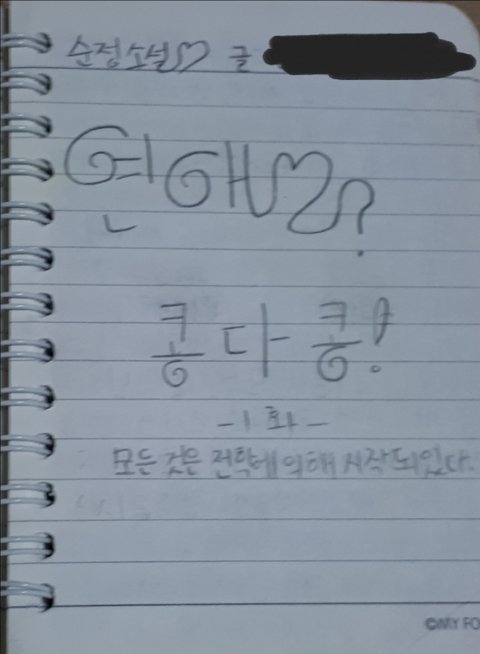 순정소설♡ 글
연애♡?
콩다콩!
-1화-
모든 것은 전략에 의해 시작되었다.
©MY FO